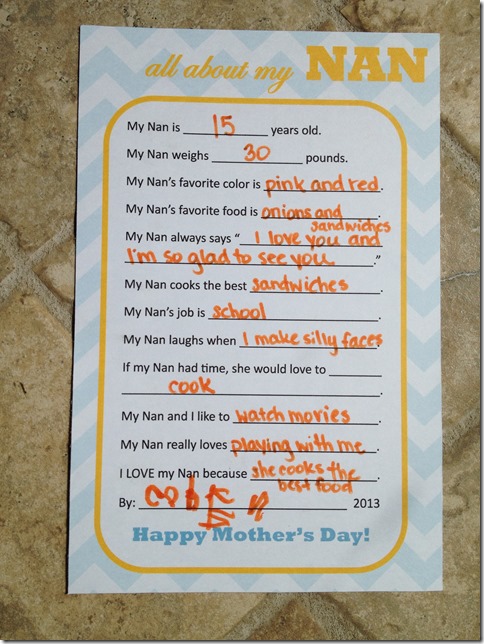 all about my NAN
My Nan is 15 years old.
My Nan weighs 30 pounds.
My Nan's favorite color is pink and red.
My Nan's favorite food is onions and
sandwiches.
My Nan always says "I love you and
I'm so glad to see you."
My Nan cooks the best sandwiches.
My Nan's job is school.
My Nan laughs when I make silly faces.
If my Nan had time, she would love to
cook.
My Nan and I like to watch movies.
My Nan really loves playing with me.
I LOVE my Nan because she cooks the
best food.
By: 2013
Happy Mother's Day!